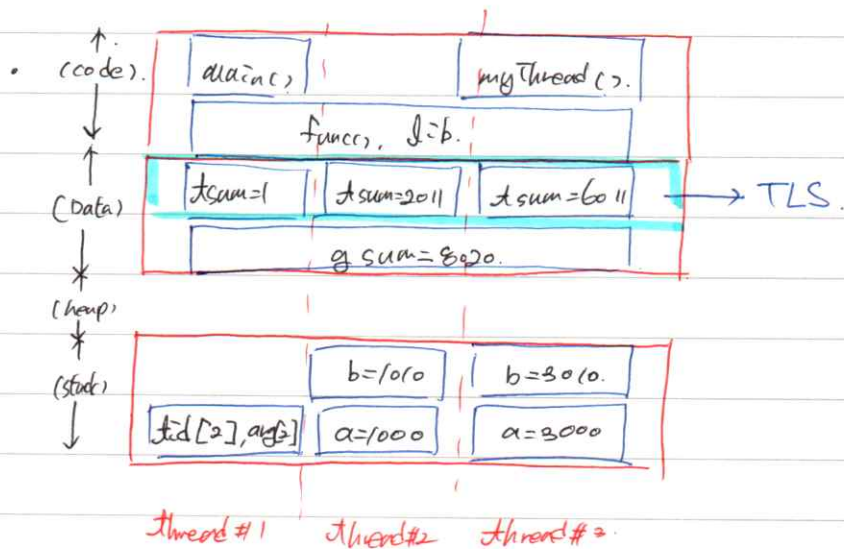 (code). main() myThread().
func(), l=b.
(Data) tsum=1 tsum=2011 tsum=6011 → TLS.
gsum=8020.
(heap)
(stack) b=1010 b=3010.
tid[2], arg[2] a=1000 a=3000
thread#1 thread#2 thread#3.